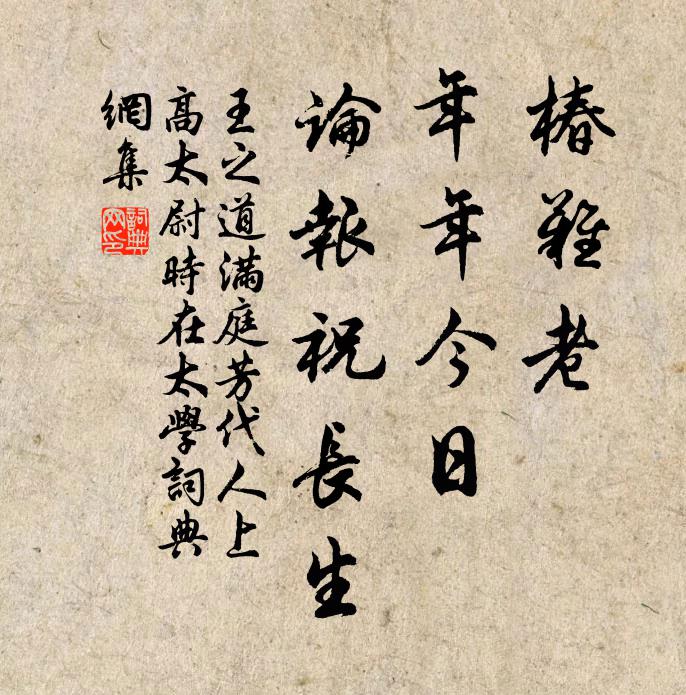 椿難老
年年今日
論報祝長生
王之道滿庭芳代人上
高太尉時在太學詞典
網集
詞典
網印